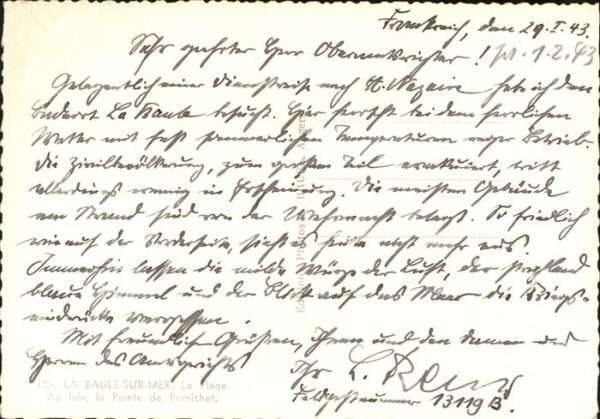 Frankreich, den 29.I.43.
Sehr geehrter Herr Oberamtsrichter! 1.2.43
Gelegentlich einer Dienstreise nach St. Nazaire habe ich den
Badeort La Baule besucht. Hier herrscht bei dem herrlichen
Wetter mit fast sommerlichen Temperaturen reger Betrieb.
Die Zivilbevölkerung, zum großen Teil evakuiert, tritt
allerdings wenig in Erscheinung. Die meisten Gebäude
am Strand sind von der Wehrmacht belegt. So friedlich
wie auf der Vorderseite, sieht es heute nicht mehr aus.
Immerhin lassen die milde Würze der Luft, der strahlend
blaue Himmel und der Blick auf das Meer die Kriegs-
eindrücke vergessen.
Mit freundlichen Grüßen, Ihnen und den Damen und
Herren des Amtsgerichts
Ihr L.
Feldpostnummer 13119 B
LA BAULE-SUR-MER. La Plage.
Au loin, la Pointe de Pornichet.